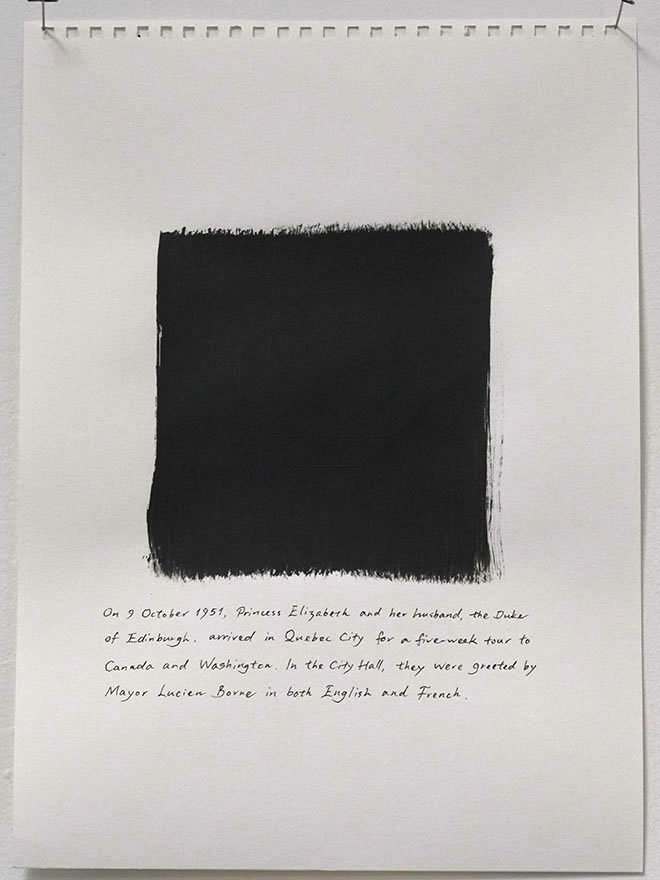 On 9 October 1951, Princess Elizabeth and her husband, the Duke
of Edinburgh. arrived in Quebec City for a five-week tour to
Canada and Washington. In the City Hall, they were greeted by
Mayor Lucien Borne in both English and French.